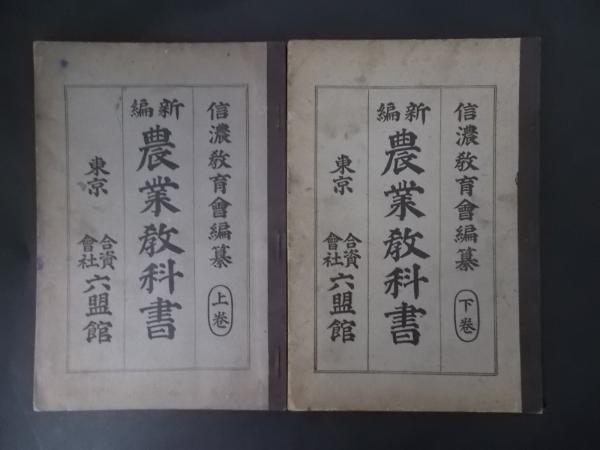 信濃教育會編纂
上卷
新編
農業教科書
東京
合資會社
六盟館
信濃教育會編纂
下卷
新編
農業教科書
東京
合資會社
六盟館